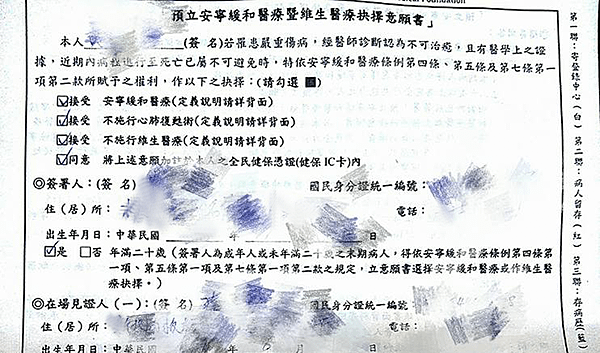 預立安寧緩和醫療暨維生醫療抉擇意願書」
本人 (簽 名)若罹患嚴重傷病，經醫師診斷認為不可治癒，且有醫學上之證
據，近期內病程進行至死亡已屬不可避免時，特依安寧緩和醫療條例第四條、第五條及第七條第一
項第二款所賦予之權利，作以下之抉擇：(請勾選 ■)
☑接受 安寧緩和醫療(定義說明請詳背面)
☑接受 不施行心肺復甦術(定義說明請詳背面)
☑接受 不施行維生醫療(定義說明請詳背面)
☑同意 將上述意願加註於本人之全民健保憑證(健保 IC卡)內
◎簽署人：(簽 名) 國民身分證統一編號：
住（居）所： 電話：
出生年月日：中華民國 年
☑是 □否 年滿二十歲（簽署人為成年人或未年滿二十歲之末期病人，得依安寧緩和醫療條例第四條第
一項、第五條第一項及第七條第一項第二款之規定，立意願書選擇安寧緩和醫療或作維生醫
療抉擇。）
◎在場見證人（一）：(簽 名) 國民身分證統一編號：
住（居）所： 電話：
出生年月日：中華民國 年 月
第一聯：寄登錄中心（白） 第二聯：病人留存（紅） 第三聯：存病歷（藍）